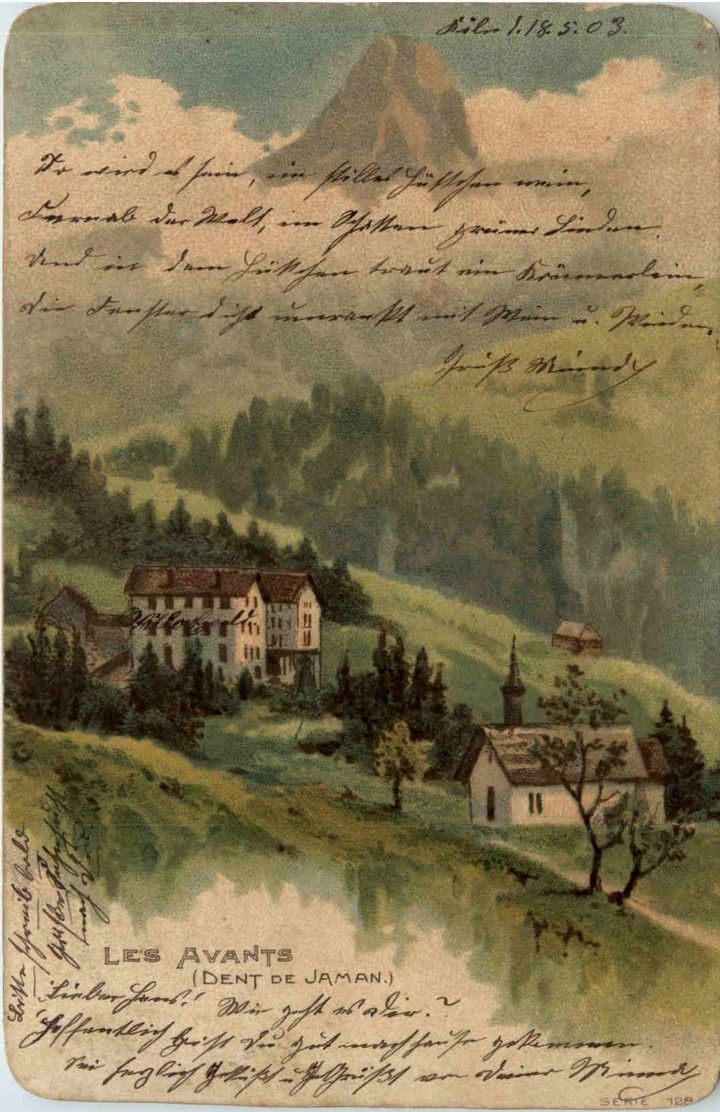 Köln d. 18.5.03.
So wird es sein, ein stilles Hüttchen mein,
Fernab der Welt, im Schatten grüner Linden.
Und in dem Hüttchen traut ein Kämmerlein,
die Fenster dicht umrankt mit Wein u. Winden.
Gruß
Bitte schreib bald
LES AVANTS
(DENT DE JAMAN.)
Lieber Hans! Wie geht es Dir?
Hoffentlich bist Du gut nach Hause gekommen.
Sei herzlich geküßt u. gegrüßt von Deiner
SERIE 128